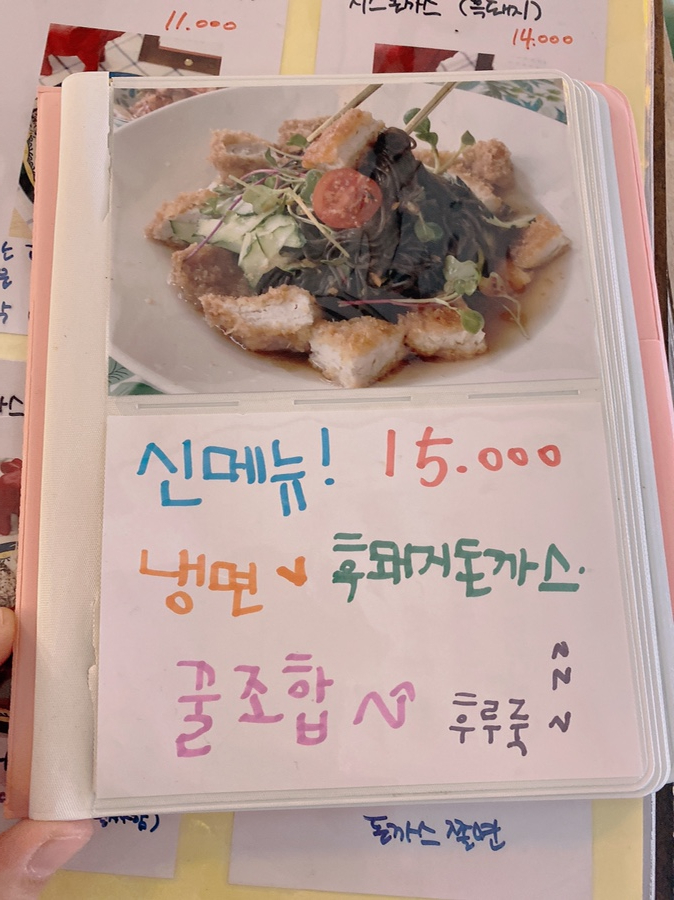 11.000
치즈돈까스 (흑돼지)
14.000
신메뉴! 15.000
냉면 ♥ 흑돼지돈까스.
꿀조합 후루룩 ~~~
돈까스 쫄면